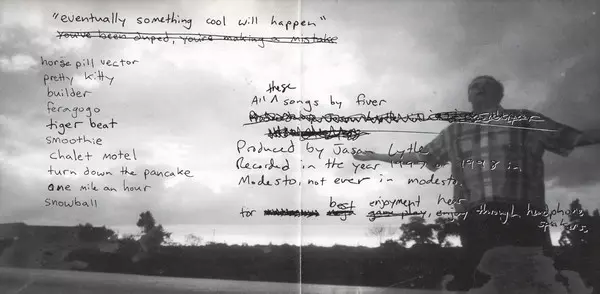 "eventually something cool will happen"
you've been duped, you're making a mistake
horse pill vector
pretty kitty
builder
feragogo
tiger beat
smoothie
chalet motel
turn down the pancake
one mile an hour
snowball
All these songs by fiver
Produced by Jason Lytle
Recorded in the year 1997 or 1998 in
Modesto, not ever in modesto.
for best enjoyment hear
game play, enjoy through headphone
speakers.